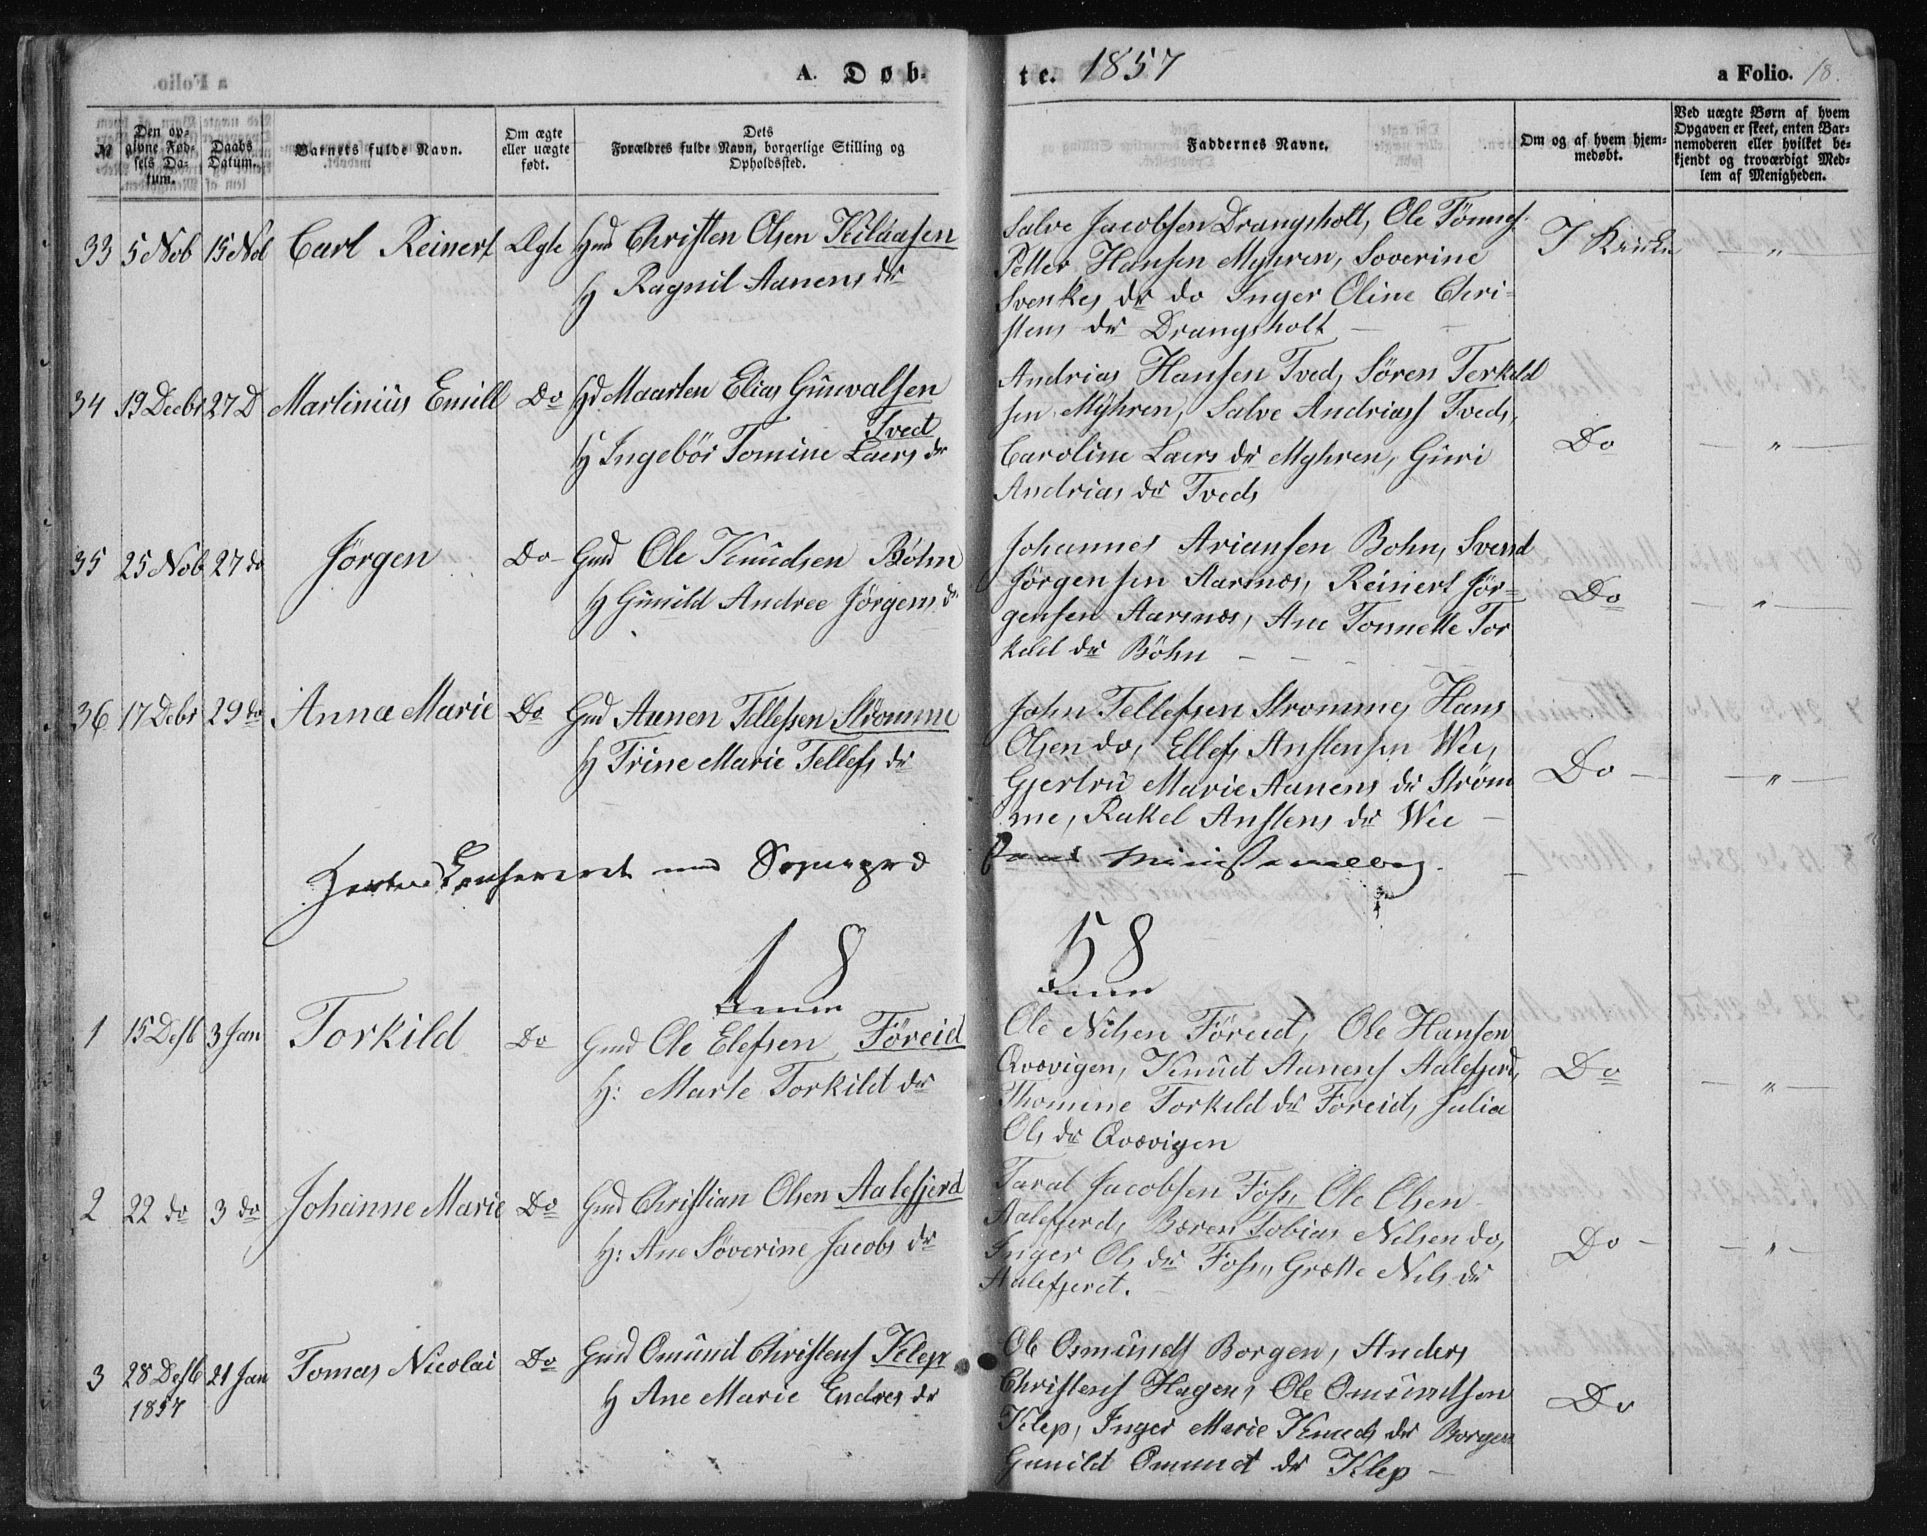 A. Døb-
te. 1857
a Folio. 18.
№
Den opgivne Fødsels Datum.
Daabs Datum.
Barnets fulde Navn.
Om ægte eller uægte født.
Dets Forældres fulde Navn, borgerlige Stilling og Opholdssted.
Faddernes Navne.
Om og af hvem hjemmedøbt.
Ved uægte Børn af hvem Opgaven er skeet, enten Barnemoderen eller hvilket bekjendt og troværdigt Medlem af Menigheden.
33 5 Nob 15 Nob Carl Reinert Ægte Christen Olsen Kilaasen
H Ragnil Aanens dr
Salve Jacobsen Drangsholt, Ole Tønnes.
Petter Hansen Myhren, Soverine
Svenkes dr do Inger Oline Chri-
stens dr Drangsholt
I Kirken "
34 19 Decbr 27 D Martinius Emill Do Maarten Elias Gunvalsen
Tved
H Ingebör Tomine Laers dr
Andrias Hansen Tved, Søren Terkild
sen Myhren, Salve Andriass Tveds,
Caroline Laers dr Myhren, Guri
Andrias dr Tveds
Do "
35 25 Nob 27 do Jørgen Do Gmd Ole Knudsen Böhn
H Gunild Andree Jørgens dr
Johannes Ariansen Bohn, Svend
Jörgensen Aarsnes, Reinert Jör-
gensen Aarsnes, Ane Tonnette Tor
kild dr Böhn
Do "
36 17 Debr 29 do Anna Marie Do Gmd Aanen Tellefsen Strömme
H Trine Marie Tellefs dr
John Tellefsen Stromme, Hans
Olsen do, Ellefs Anstensen Wee,
Gjertru Marie Aanens dr Strøm
me, Rakel Anstens dr Wee
Do "
18
58
1 15 Desb 3 Jan Torkild Do Gmd Ole Elefsen Föreid
H: Marte Torkild dr
Ole Nilsen Föreid, Ole Hansen
Qvævigen, Knud Aanens Aalefjerd,
Thomine Torkild dr Foreid, Julia
Ols dr Qvævigen
Do "
2 22 do 3 do Johanne Marie Do Gmd Christian Olsen Aalefjerd
H: Ane Söverine Jacobs dr
Taral Jacobsen Foss, Ole Olsen
Aalefjerd, Bæren Tobias Nilsen do,
Inger Ols dr Foss, Grætte Nils dr
Aalefjerd.
Do "
3 28 Desb 21 Jan Tomas Nicolai Do Gmd Omund Christens Klep
1857
H Ane Marie Endres dr
Ole Osmunds Borgen, Anders
Christens Hagen, Ole Omundsen
Klep, Inger Marie Knuds dr Borgen
Gunild Omund dr Klep
Do